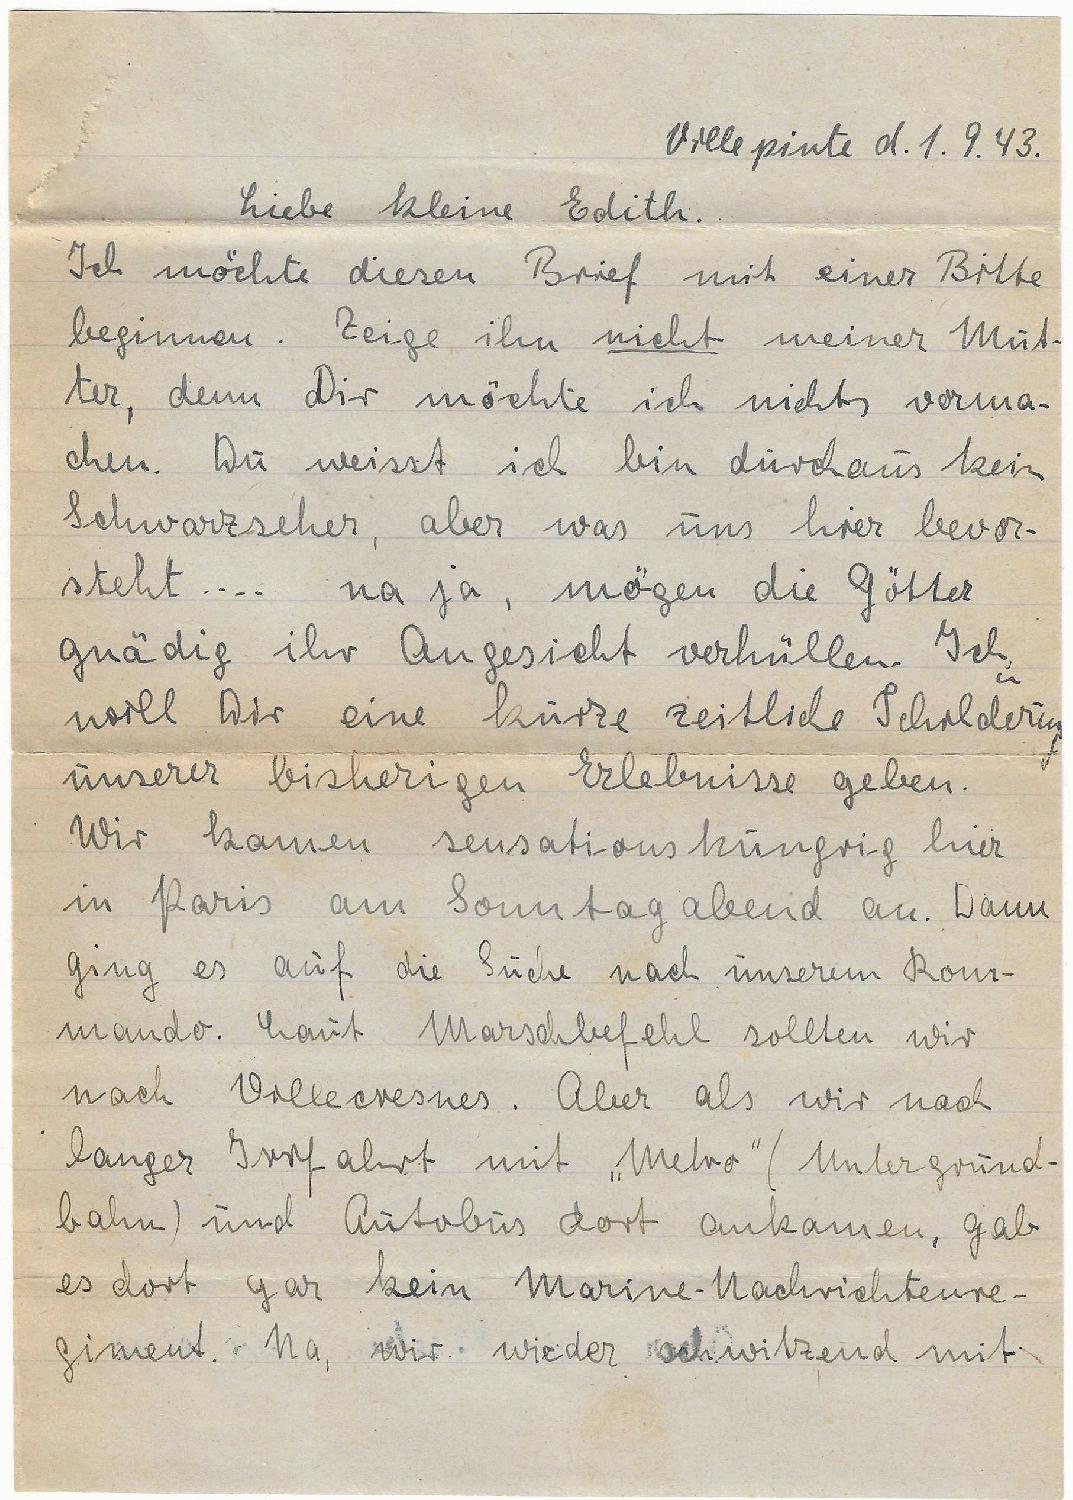 Villepinte d. 1. 9. 43.
Liebe kleine Edith.
Ich möchte diesen Brief mit einer Bitte
beginnen. Zeige ihn nicht meiner Mut-
ter, denn Dir möchte ich nichts vorma-
chen. Du weisst ich bin durchaus kein
Schwarzseher, aber was uns hier bevor-
steht .... na ja, mögen die Götter
gnädig ihr Angesicht verhüllen. Ich
will Dir eine kurze zeitliche Schilderung
unserer bisherigen Erlebnisse geben.
Wir kamen sensationshungrig hier
in Paris am Sonntagabend an. Dann
ging es auf die Suche nach unserem Kom-
mando. Laut Marschbefehl sollten wir
nach Villecresnes. Aber als wir nach
langer Irrfahrt mit „Metro" (Untergrund-
bahn) und Autobus dort ankamen, gab
es dort gar kein Marine-Nachrichtenre-
giment. Na, wir wieder schwitzend mit